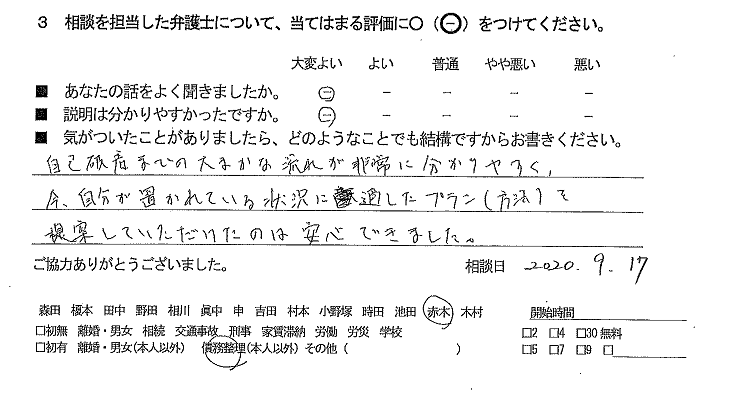 3 相談を担当した弁護士について、当てはまる評価に○（㊀）をつけてください。
大変よい よい 普通 やや悪い 悪い
■ あなたの話をよく聞きましたか。 ㊀ － － － －
■ 説明は分かりやすかったですか。 ㊀ － － － －
■ 気がついたことがありましたら、どのようなことでも結構ですからお書きください。
自己破産までの大まかな流れが非常に分かりやすく、
今、自分が置かれている状況に適したプラン(方法)を
提案していただけたのは安心できました。
ご協力ありがとうございました。 相談日 2020. 9. 17
森田 榎本 田中 野田 相川 眞中 申 吉田 村本 小野塚 時田 池田 赤木 木村 開始時間
□初無 離婚・男女 相続 交通事故 刑事 家賃滞納 労働 労災 学校 □2 □4 □30無料
□初有 離婚・男女(本人以外) 債務整理(本人以外) その他 ( ) □5 □7 □9 □